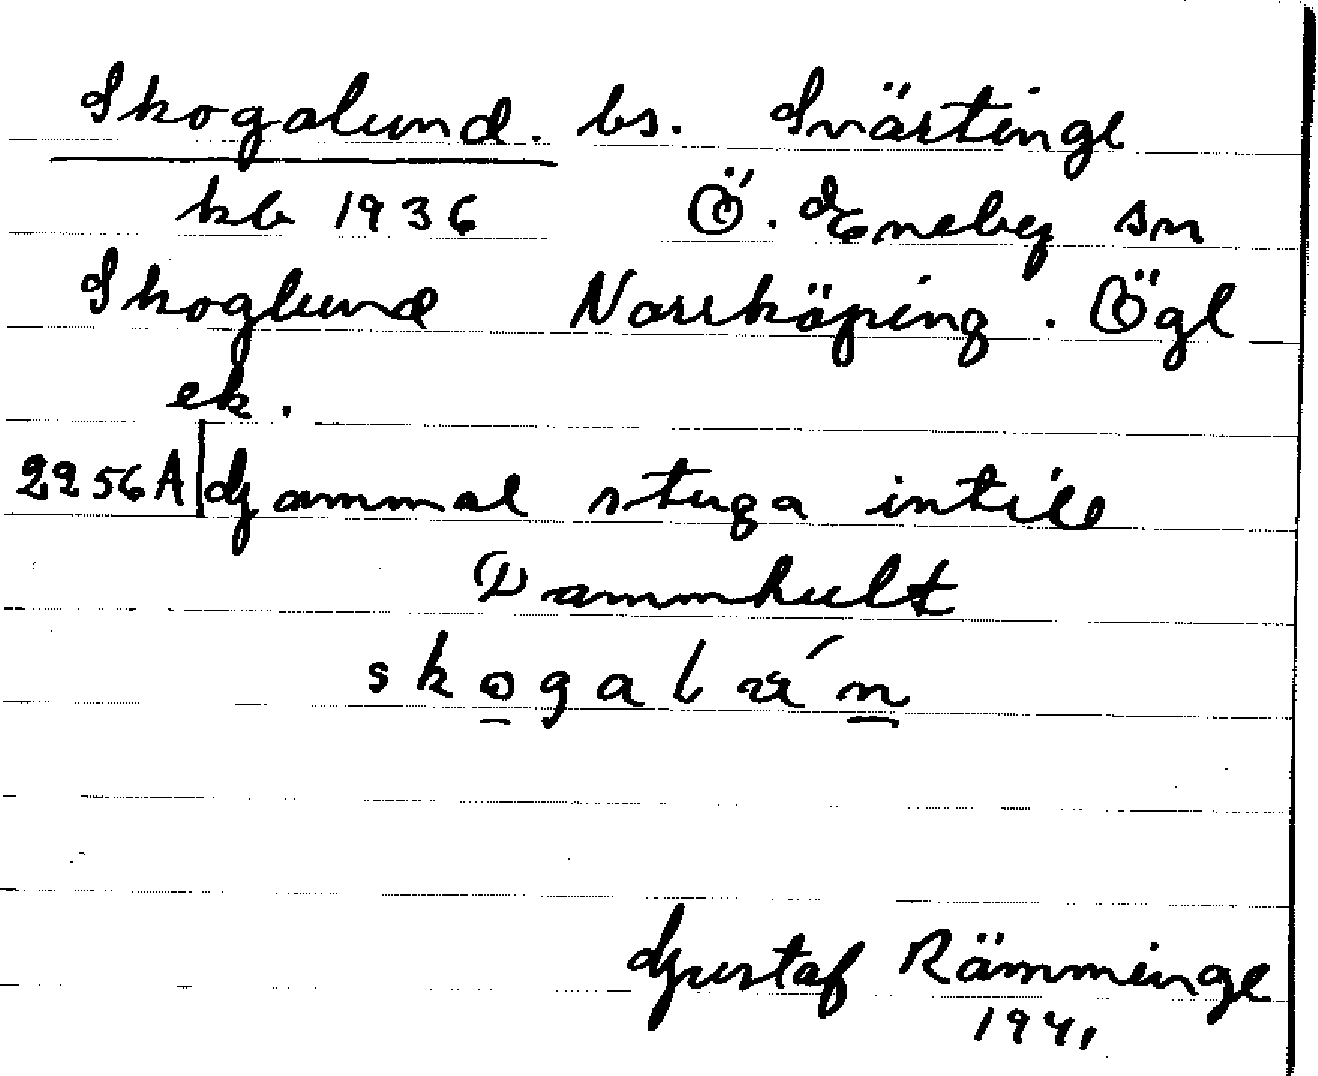 Skogalund. bs. Svärtinge
kb 1936 Ö. Eneby sn
Skoglund Norrköping. Ögl
ek.
2256A Gammal stuga intill
Dammhult
Gustaf Rämminge
1941